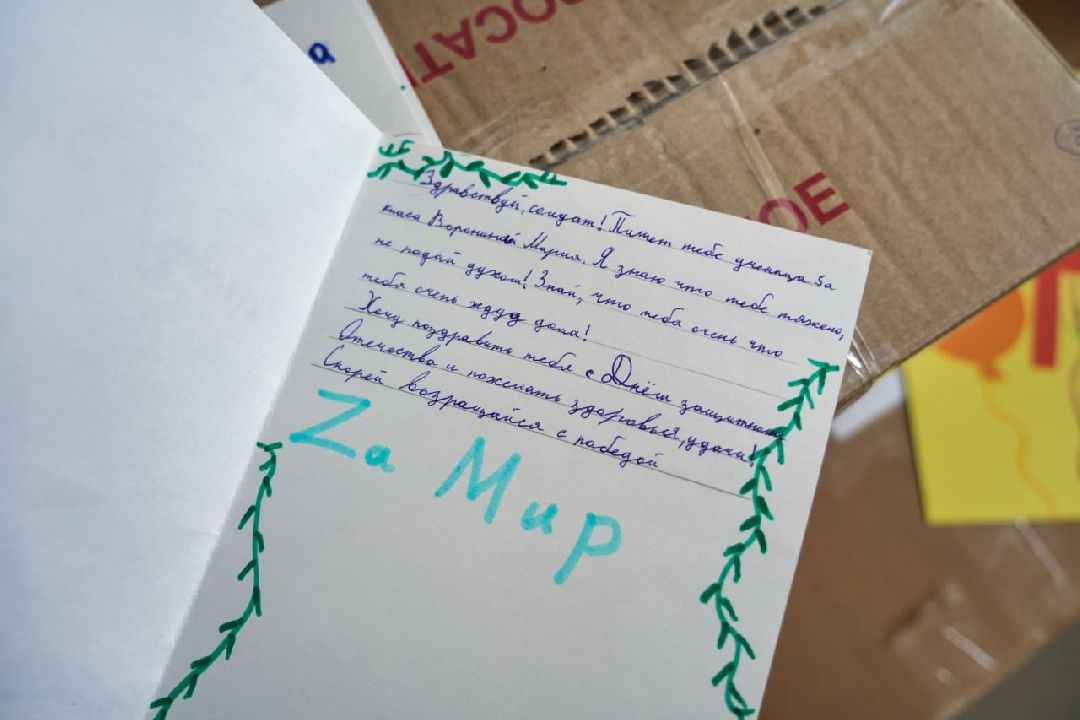 а
БРОСАТЬ
ОЕ
Здравствуй, солдат! Пишет тебе ученица 5а
класа Воронина Мария. Я знаю что тебе тяжело,
не подай духом! Знай, что тебя очень что
тебя очень ждут дома!
Хочу поздравить тебя с Днём защитника
Отечества и пожелать здоровья, удачи!
Скорей возращайся с победой
Zа Мир